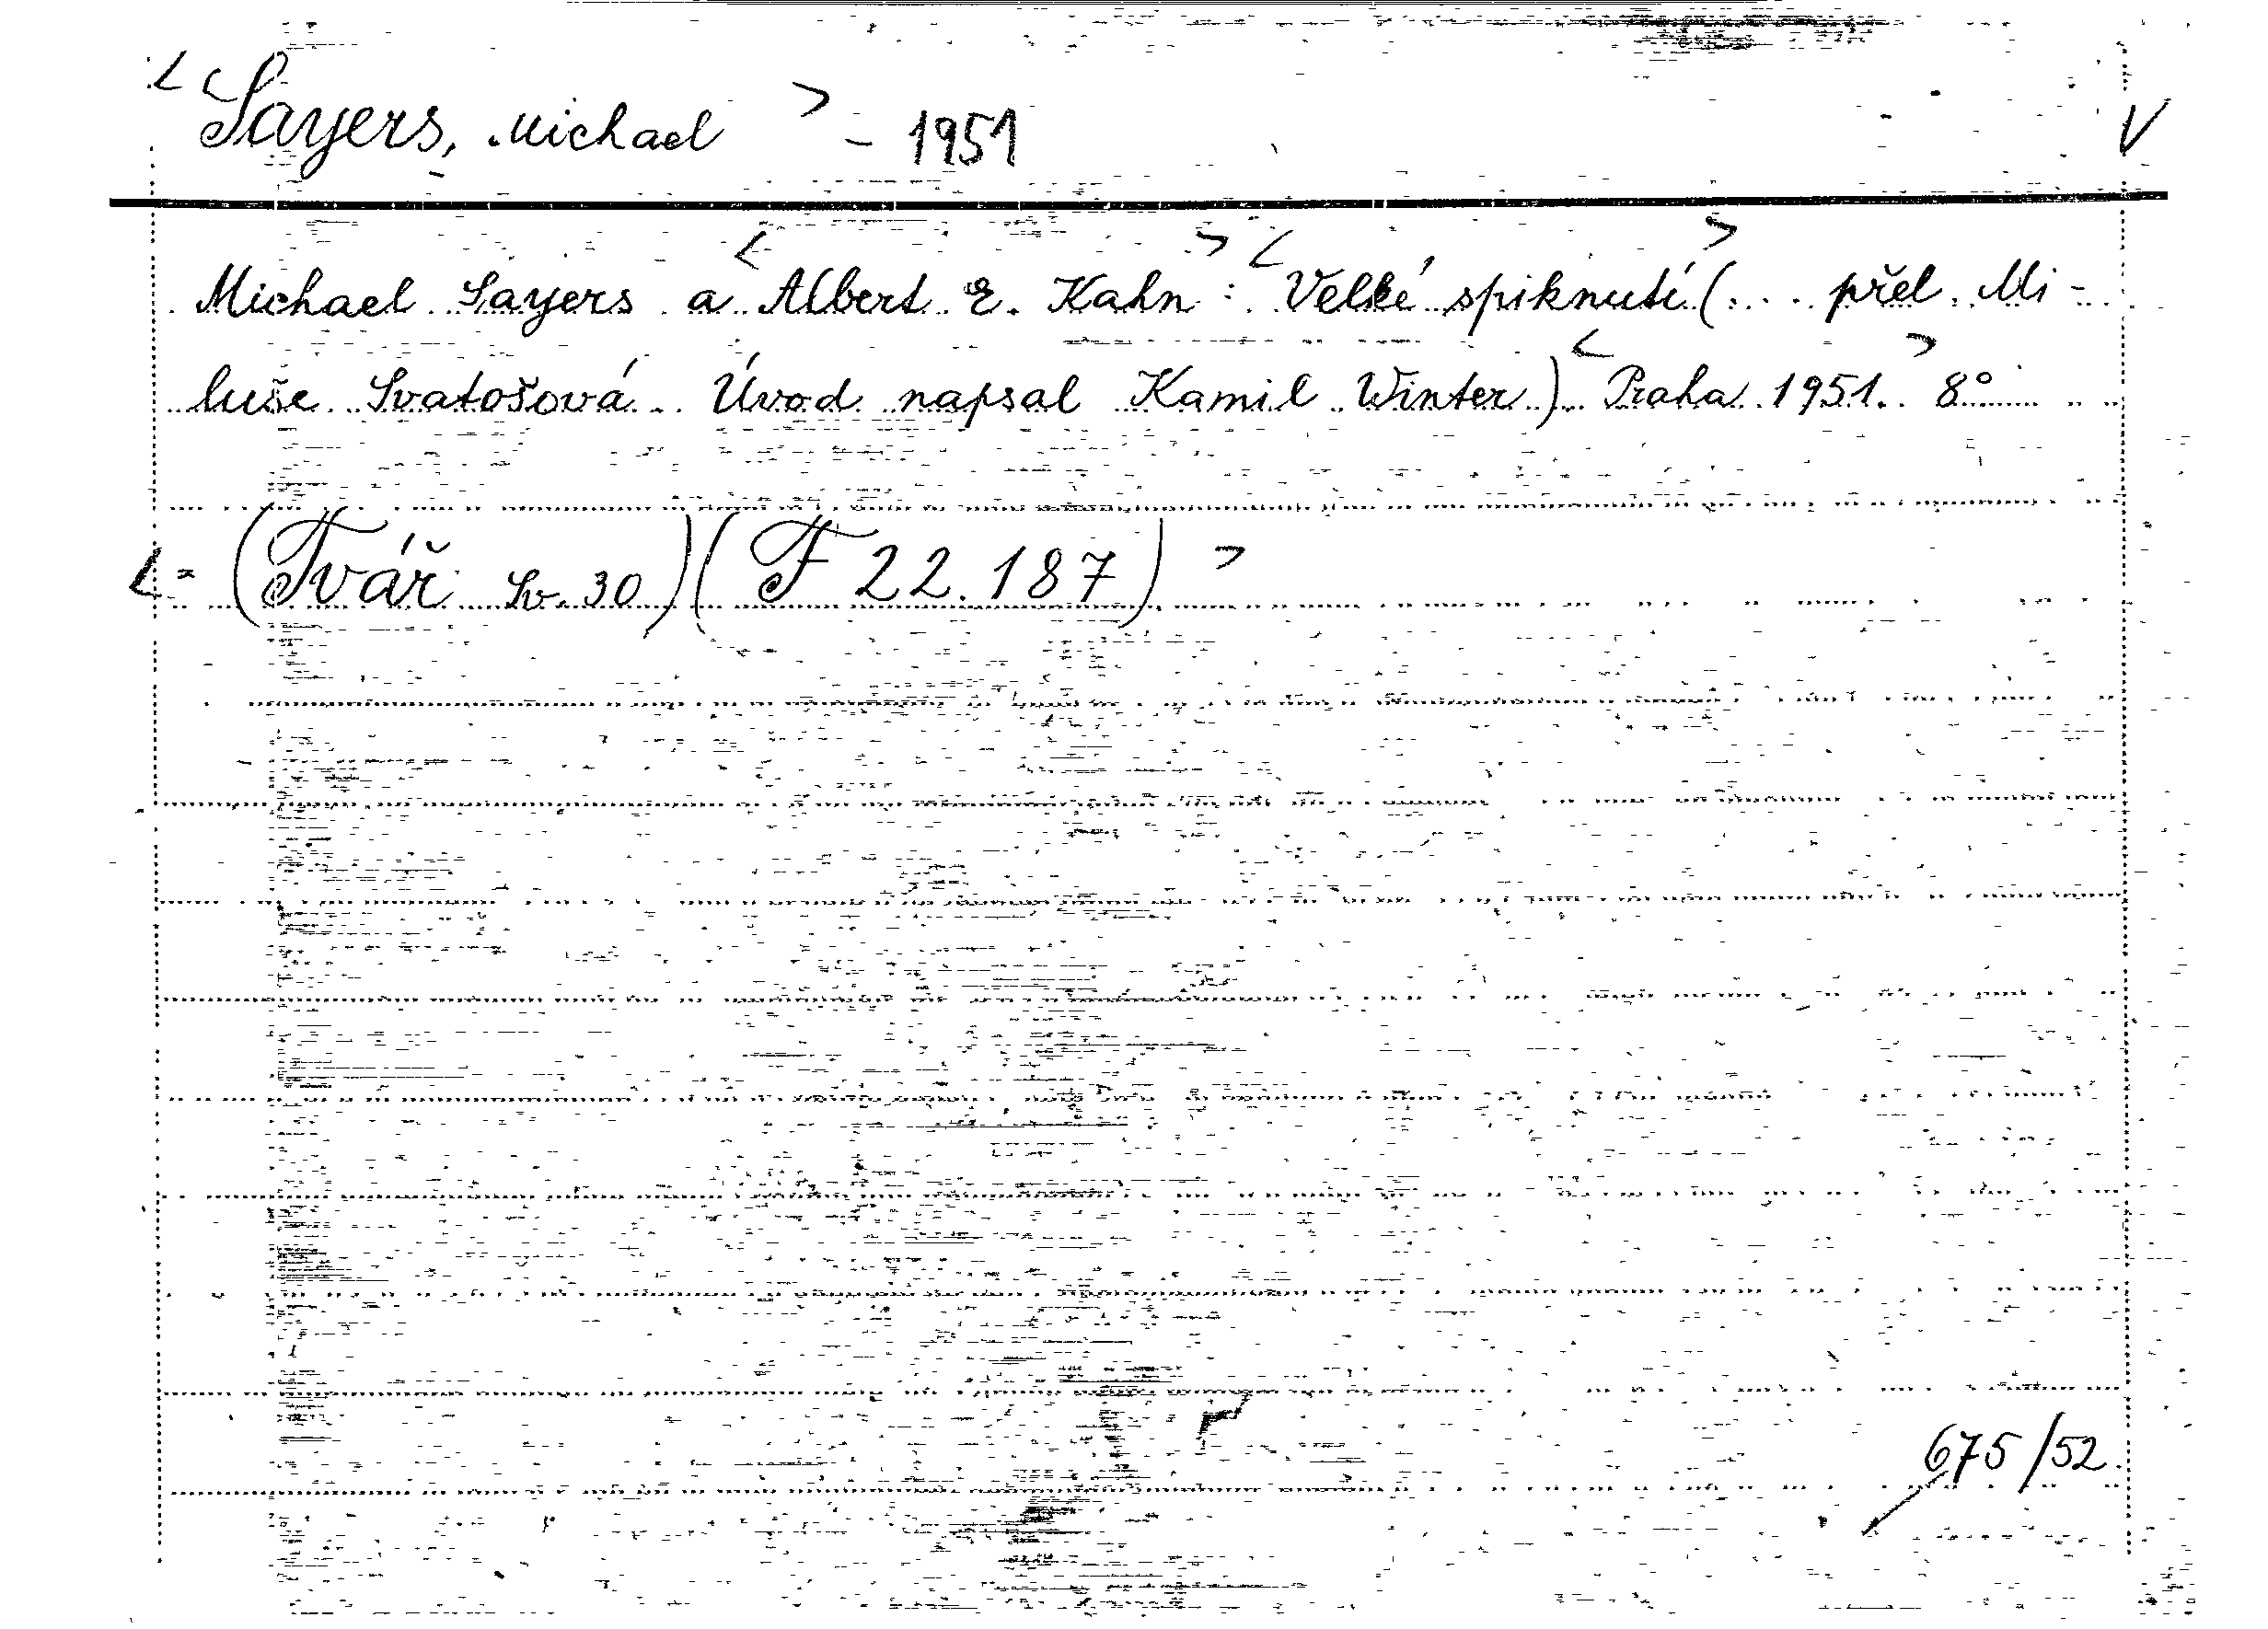 < Sayers, Michael > - 1951 V
Michael Sayers a < Albert E. Kahn > : < Velké spiknutí > (... přel. Mi-
luše Svatošová. Úvod napsal Kamil Winter) < Praha > 1951. 8°
< = (Tvář Sv. 30) (F 22.187) >
675/52